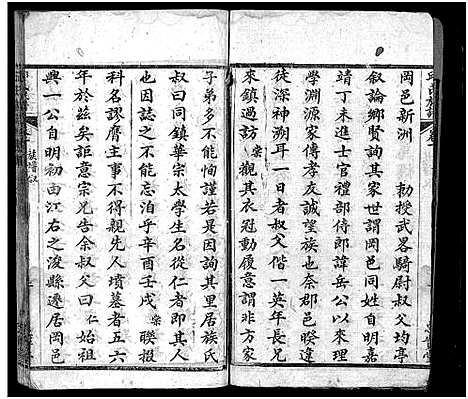 岡邑新洲 勅授武畧騎尉叔父均亭
叙論鄉賢詢其家世謂岡邑同姓自明嘉
靖丁未進士官禮部侍郎諱岳公以來理
學淵源家傳孝友誠望族也奈郡邑暌違
徒深神溯耳一日者叔父偕一英年長弟
來鎮過訪宗觀其衣冠動履意謂非方家
子弟多不能恂謹若是因詢其里居族氏
叔曰同鎮華宗太學生名從仁者即其人
也因誌之不能忘至辛酉壬戌宗聯報
科名謬膺主事不得親先人墳墓者五六
年於茲矣詎意宗兄告余叔父曰仁始祖
興一公自明初由江右之浚縣遷居岡邑
族譜叙